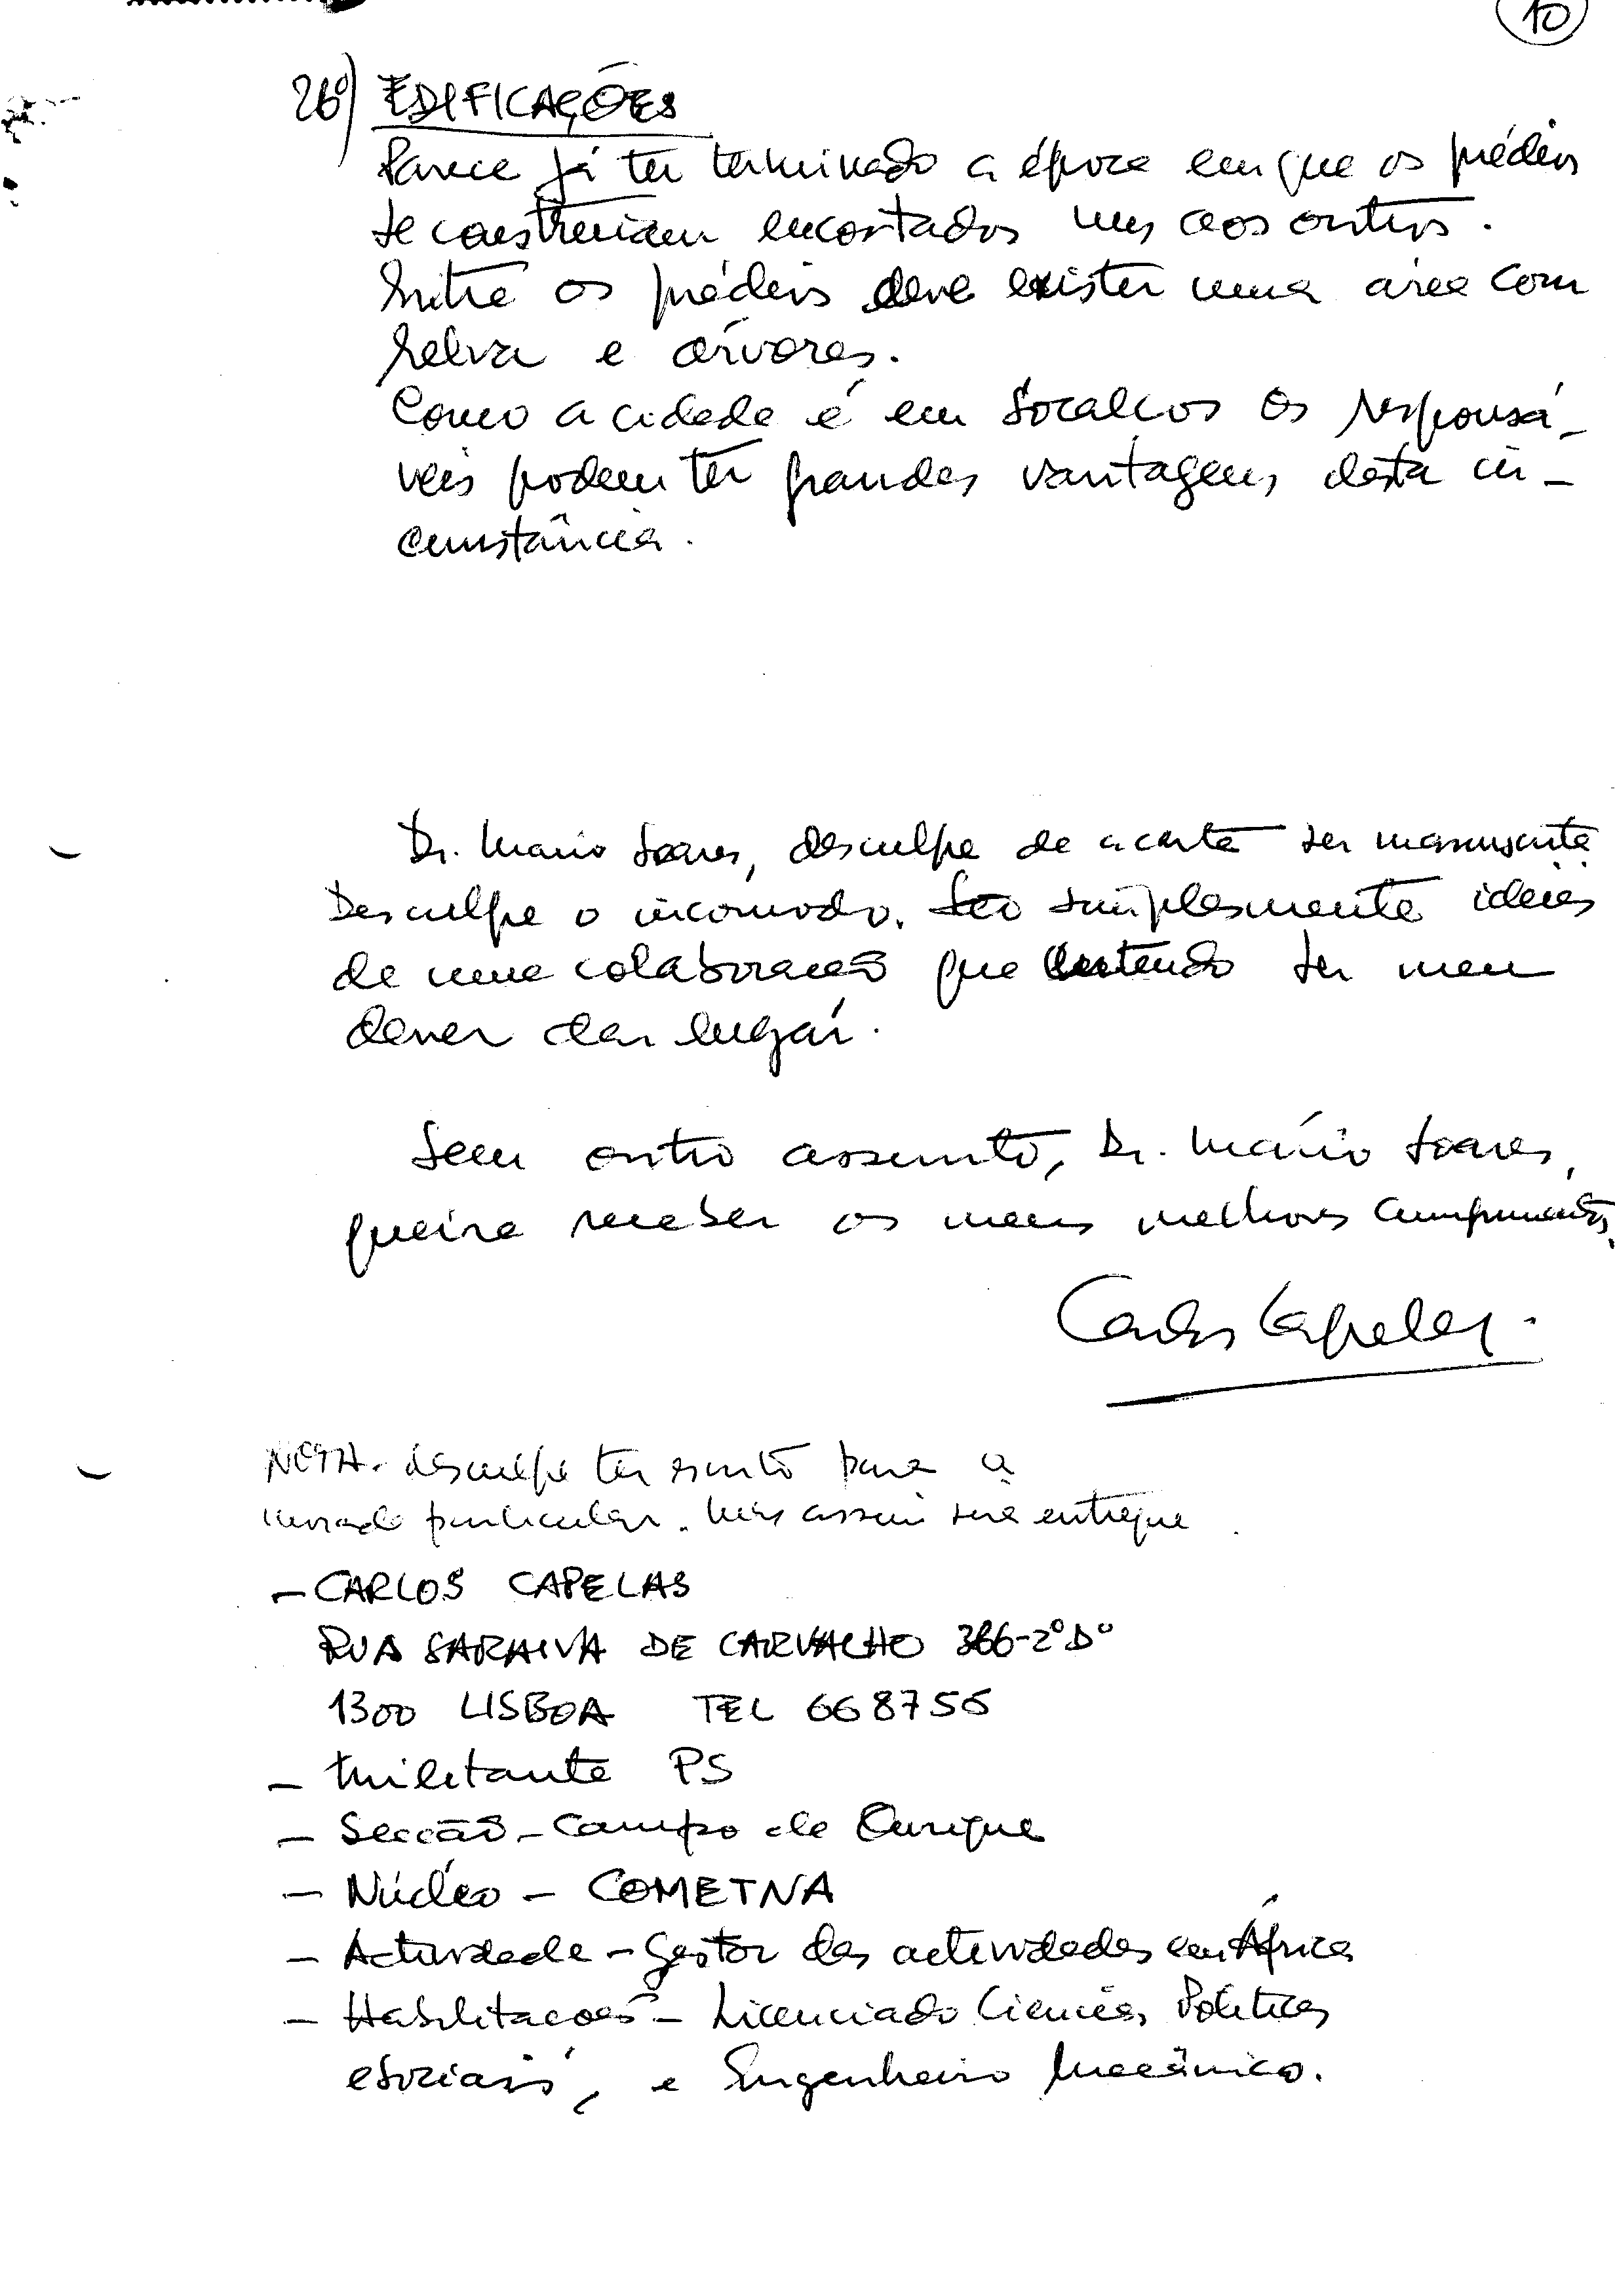 10
26º) EDIFICAÇÕES
Parece já ter terminado a época em que os prédios
se construiam encostados uns aos outros.
Entre os prédios deve existir uma área com
relva e árvores.
Como a cidade é em socalcos os responsá-
veis podem ter grandes vantagens desta cir-
cunstância.
Dr. Mario Soares, desculpe de a carta ser manuscrita
Desculpe o incomodo. São simplesmente ideias
de uma colaboracão que entendo ser meu
dever dar lugar.
Sem outro assunto, Dr. Mário Soares,
queira receber os meus melhores cumprimentos.
Carlos Capelas.
NOTA. desculpe ter escrito para a
morada particular. Mas assim será entregue.
- CARLOS CAPELAS
RUA SARAIVA DE CARVALHO 366-2º Dº
1300 LISBOA TEL 668756
- Militante PS
- Seccão - Campo de Ourique
- Núcleo - COMETNA
- Actividade - Gestor das actividades em África
- Habilitacoes - Licenciado Ciencias Politicas
e Sociais, e Engenheiro Mecânico.